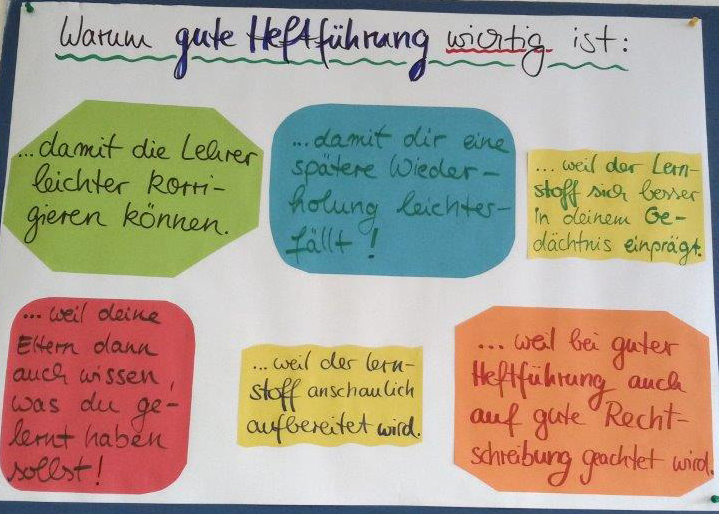 Warum gute Heftführung wichtig ist:
...damit die Lehrer
leichter korri-
gieren können.
...damit dir eine
spätere Wieder-
holung leichter-
fällt!
... weil der Lern-
stoff sich besser
in deinem Ge-
dächtnis einprägt.
... weil deine
Eltern dann
auch wissen,
was du ge-
lernt haben
sollst!
...weil der Lern-
stoff anschaulich
aufbereitet wird.
... weil bei guter
Heftführung auch
auf gute Recht-
schreibung geachtet wird.